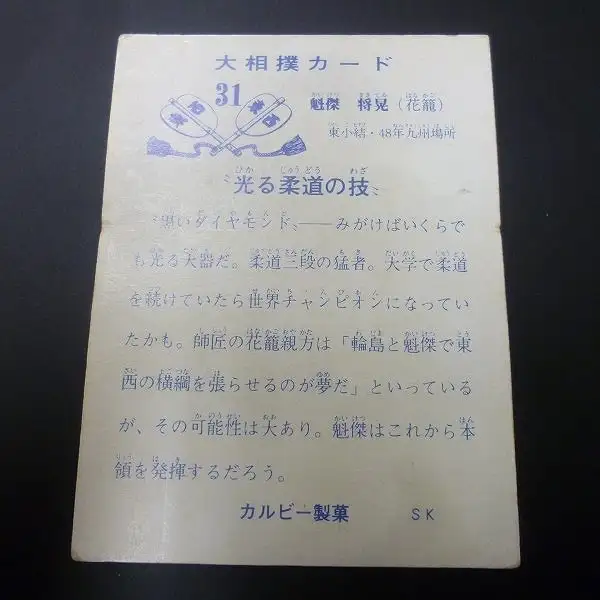 大相撲カード
31
魁傑 将晃(花籠)
東小結・48年九州場所
〝光る柔道の技〟
〝黒いダイヤモンド〟――みがけばいくらで
も光る大器だ。柔道三段の猛者。大学で柔道
を続けていたら世界チャンピオンになってい
たかも。師匠の花籠親方は「輪島と魁傑で東
西の横綱を張らせるのが夢だ」といっている
が、その可能性は大あり。魁傑はこれから本
領を発揮するだろう。
カルビー製菓 SK